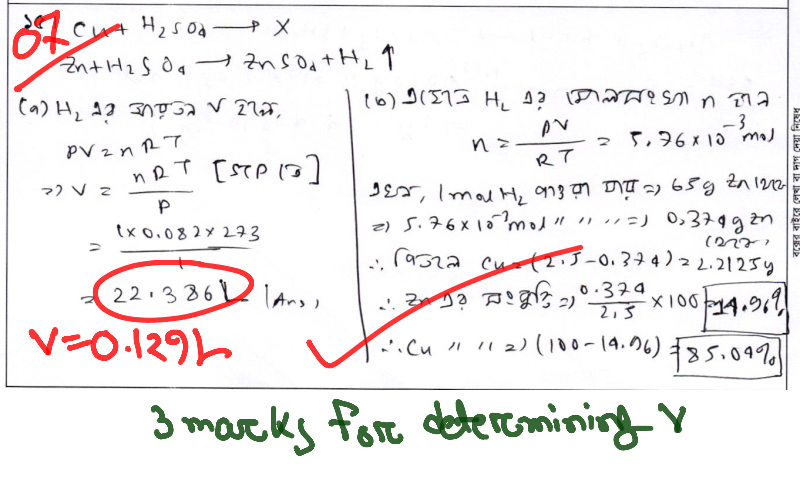 07
Cu + H₂SO₄ → X
Zn + H₂SO₄ → ZnSO₄ + H₂↑
(a) H₂ এর আয়তন V হলে,
PV = nRT
⇒ V = nRT / P [STP তে]
= 1×0.082×273 / 1
= 22.386 L (Ans)
V=0.129L
(b) H₂ এর মোলসংখ্যা n হলে
n = PV / RT = 5.76×10⁻³ mol
1 mol H₂ পাওয়া যায় ⇒ 65g Zn হতে
⇒ 5.76×10⁻³ mol " " " ⇒ 0.374g Zn
হতে,
∴ Cu = (2.5 - 0.374) = 2.2125g
∴ Zn এর সংযুক্তি ⇒ 0.374 / 2.5 ×100 = 14.96%
∴ Cu " " ⇒ (100-14.96) = 85.04%
3 marks for determining V
বক্সের বাইরে লেখা বা দাগ দেয়া নিষেধ